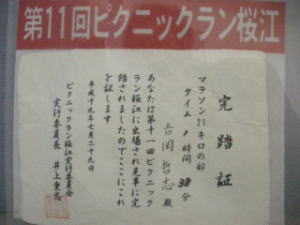 第11回ピクニックラン桜江
完踏証
マラソン21キロの部
タイム1時間38分
吉岡哲志
あなたは第十一回ピクニック
ラン桜江に出場され見事に完
踏されましたのでここにこれ
を証します
平成十九年七月二十九日
ピクニックラン桜江実行委員会
実行委員長 井上重忠